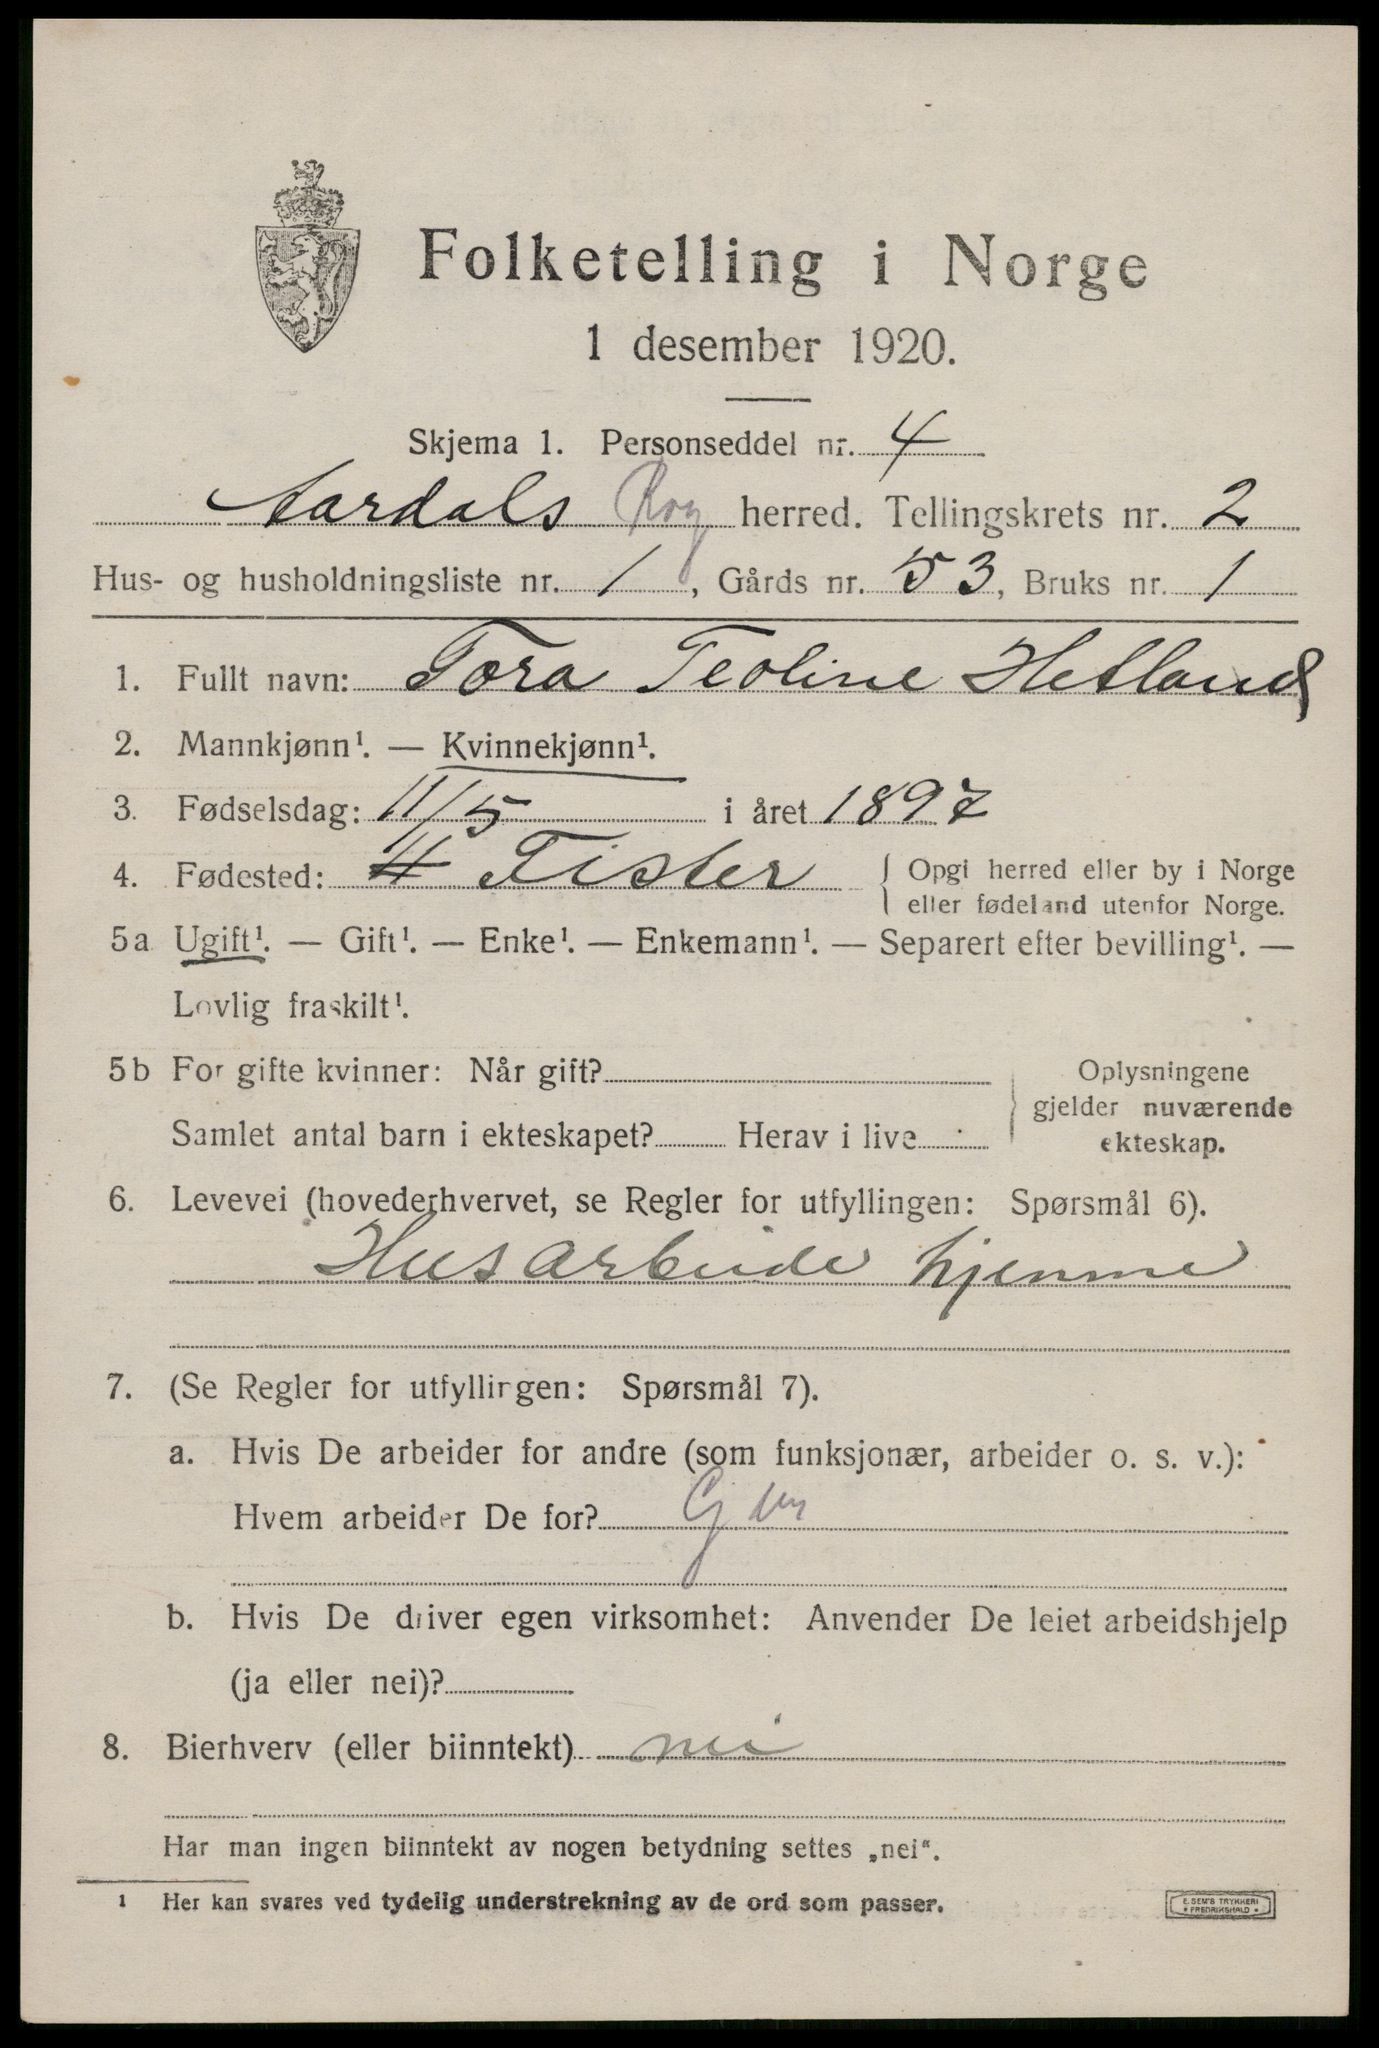 Folketelling i Norge
1 desember 1920.
Skjema 1. Personseddel nr. 4
Aardals Rog herred. Tellingskrets nr. 2
Hus- og husholdningsliste nr. 1, Gårds nr. 53, Bruks nr. 1
1. Fullt navn: Tora Teoline Hetland
2. Mannkjønn¹. — Kvinnekjønn¹.
3. Fødselsdag: 11/5 i året 1897
4. Fødested: Fister { Opgi herred eller by i Norge
eller fødeland utenfor Norge.
5a Ugift¹. — Gift¹. — Enke¹. — Enkemann¹. — Separert efter bevilling¹. —
Lovlig fraskilt¹.
5b For gifte kvinner: Når gift?
Samlet antal barn i ekteskapet? Herav i live
Oplysningene
gjelder nuværende
ekteskap.
6. Levevei (hovederhvervet, se Regler for utfyllingen: Spørsmål 6).
Husarbeide hjemme
7. (Se Regler for utfyllingen: Spørsmål 7).
a. Hvis De arbeider for andre (som funksjonær, arbeider o. s. v.):
Hvem arbeider De for?
b. Hvis De driver egen virksomhet: Anvender De leiet arbeidshjelp
(ja eller nei)?
8. Bierhverv (eller biinntekt) nei
Har man ingen biinntekt av nogen betydning settes „nei“.
1 Her kan svares ved tydelig understrekning av de ord som passer.
E. SEM'S TRYKKERI
• FREDRIKSHALD •